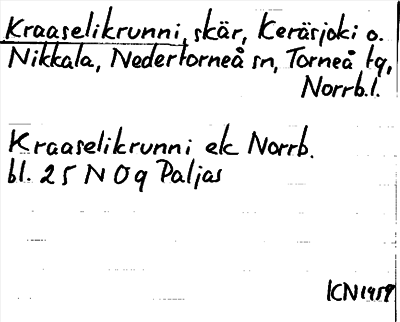 Kraaselikrunni, skär, Keräsjoki o.
Nikkala, Nedertorneå sn, Torneå tg,
Norrb.l.
Kraaselikrunni ek Norrb.
bl. 25 N O g Paljas
KN 1959